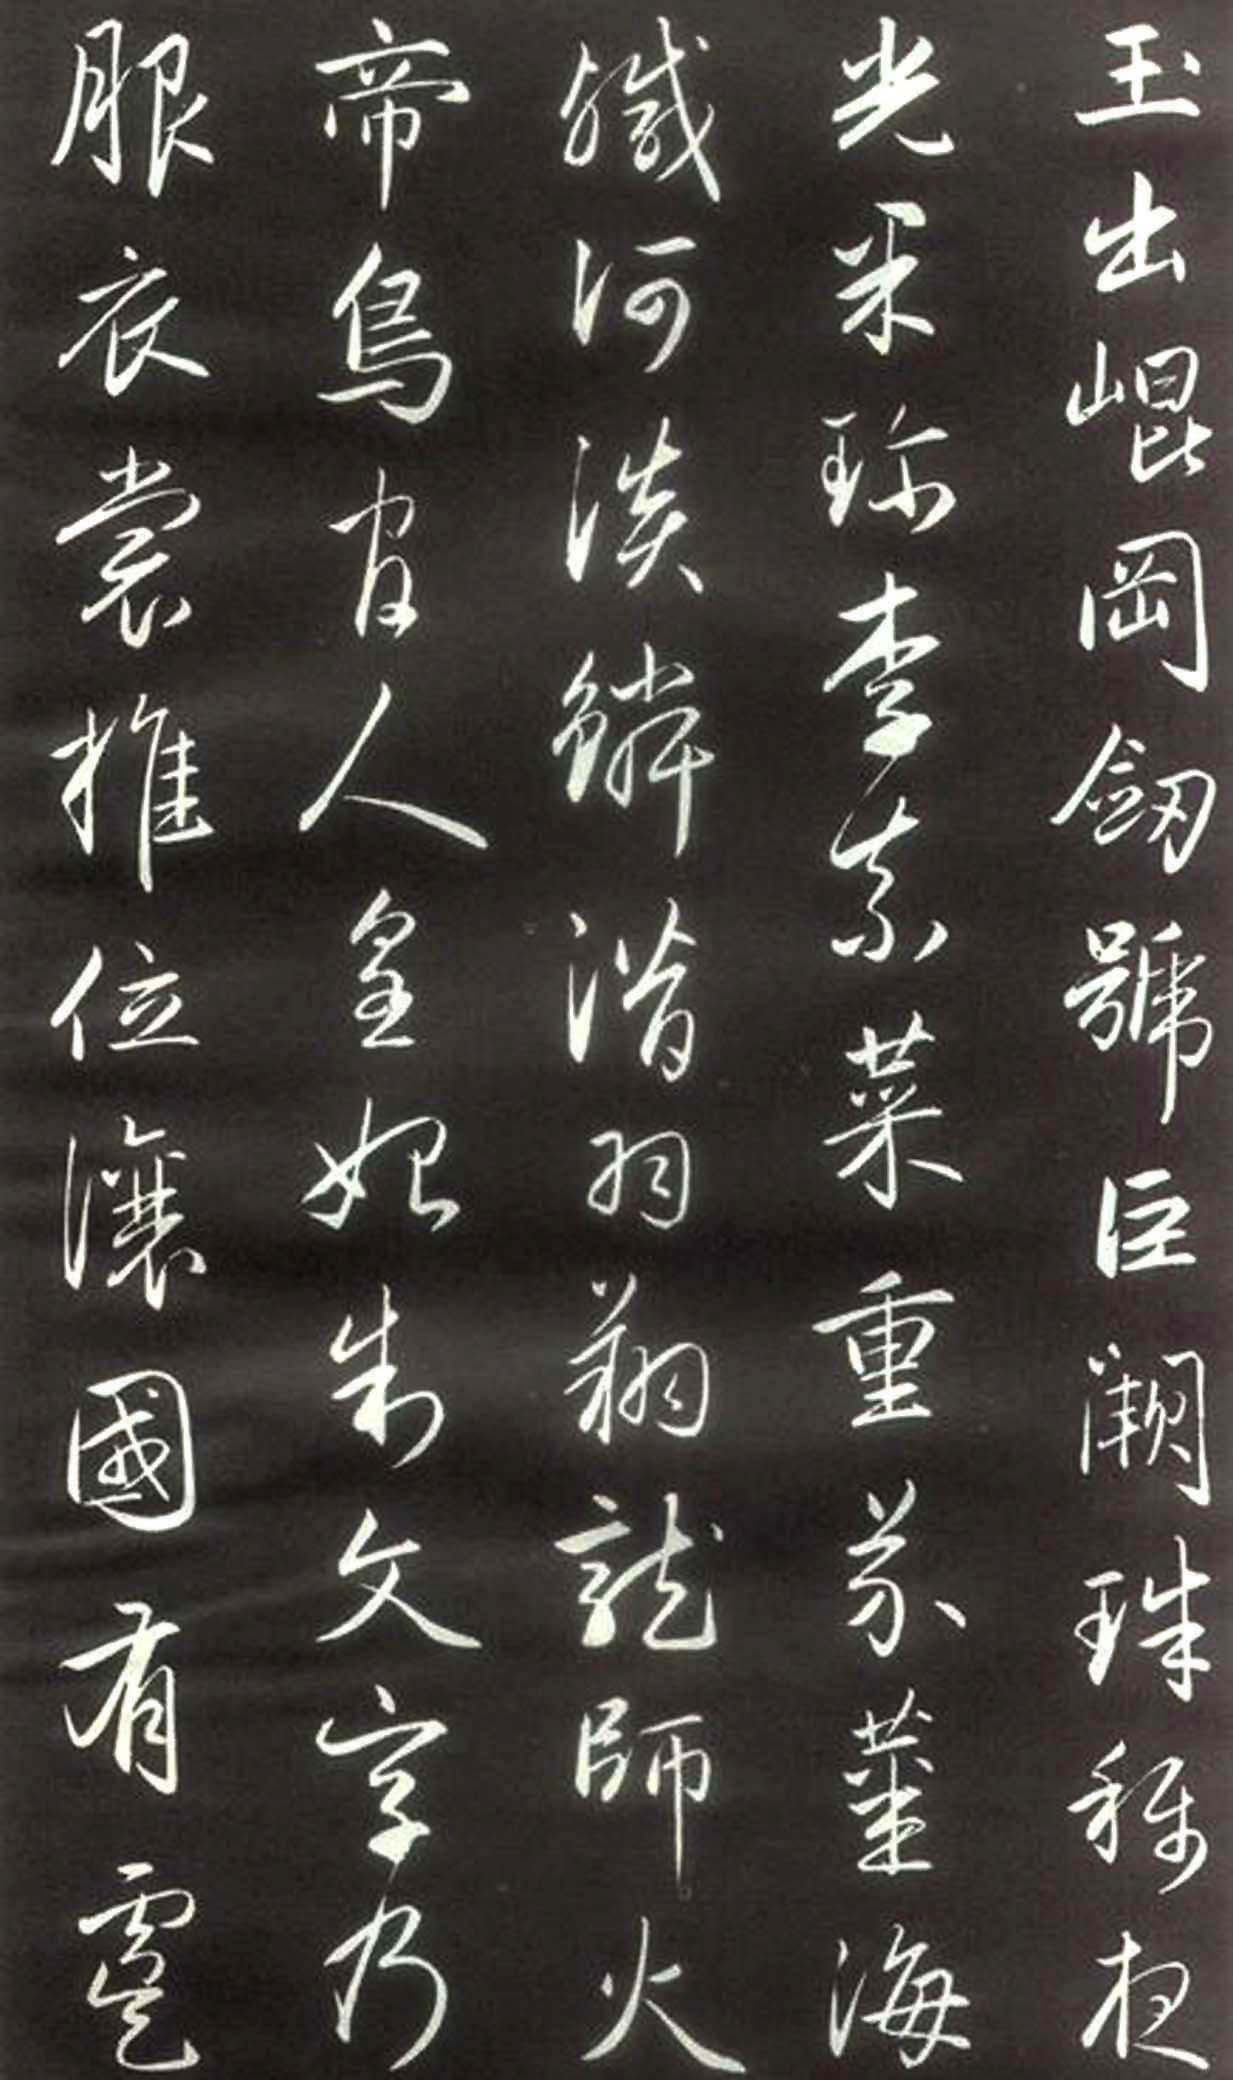 玉出崐岡劒號巨闕珠稱夜
光菓珎李柰菜重芥薑海
醎河淡鱗潛羽翔龍師火
帝鳥官人皇始制文字乃
服衣裳推位讓國有虞